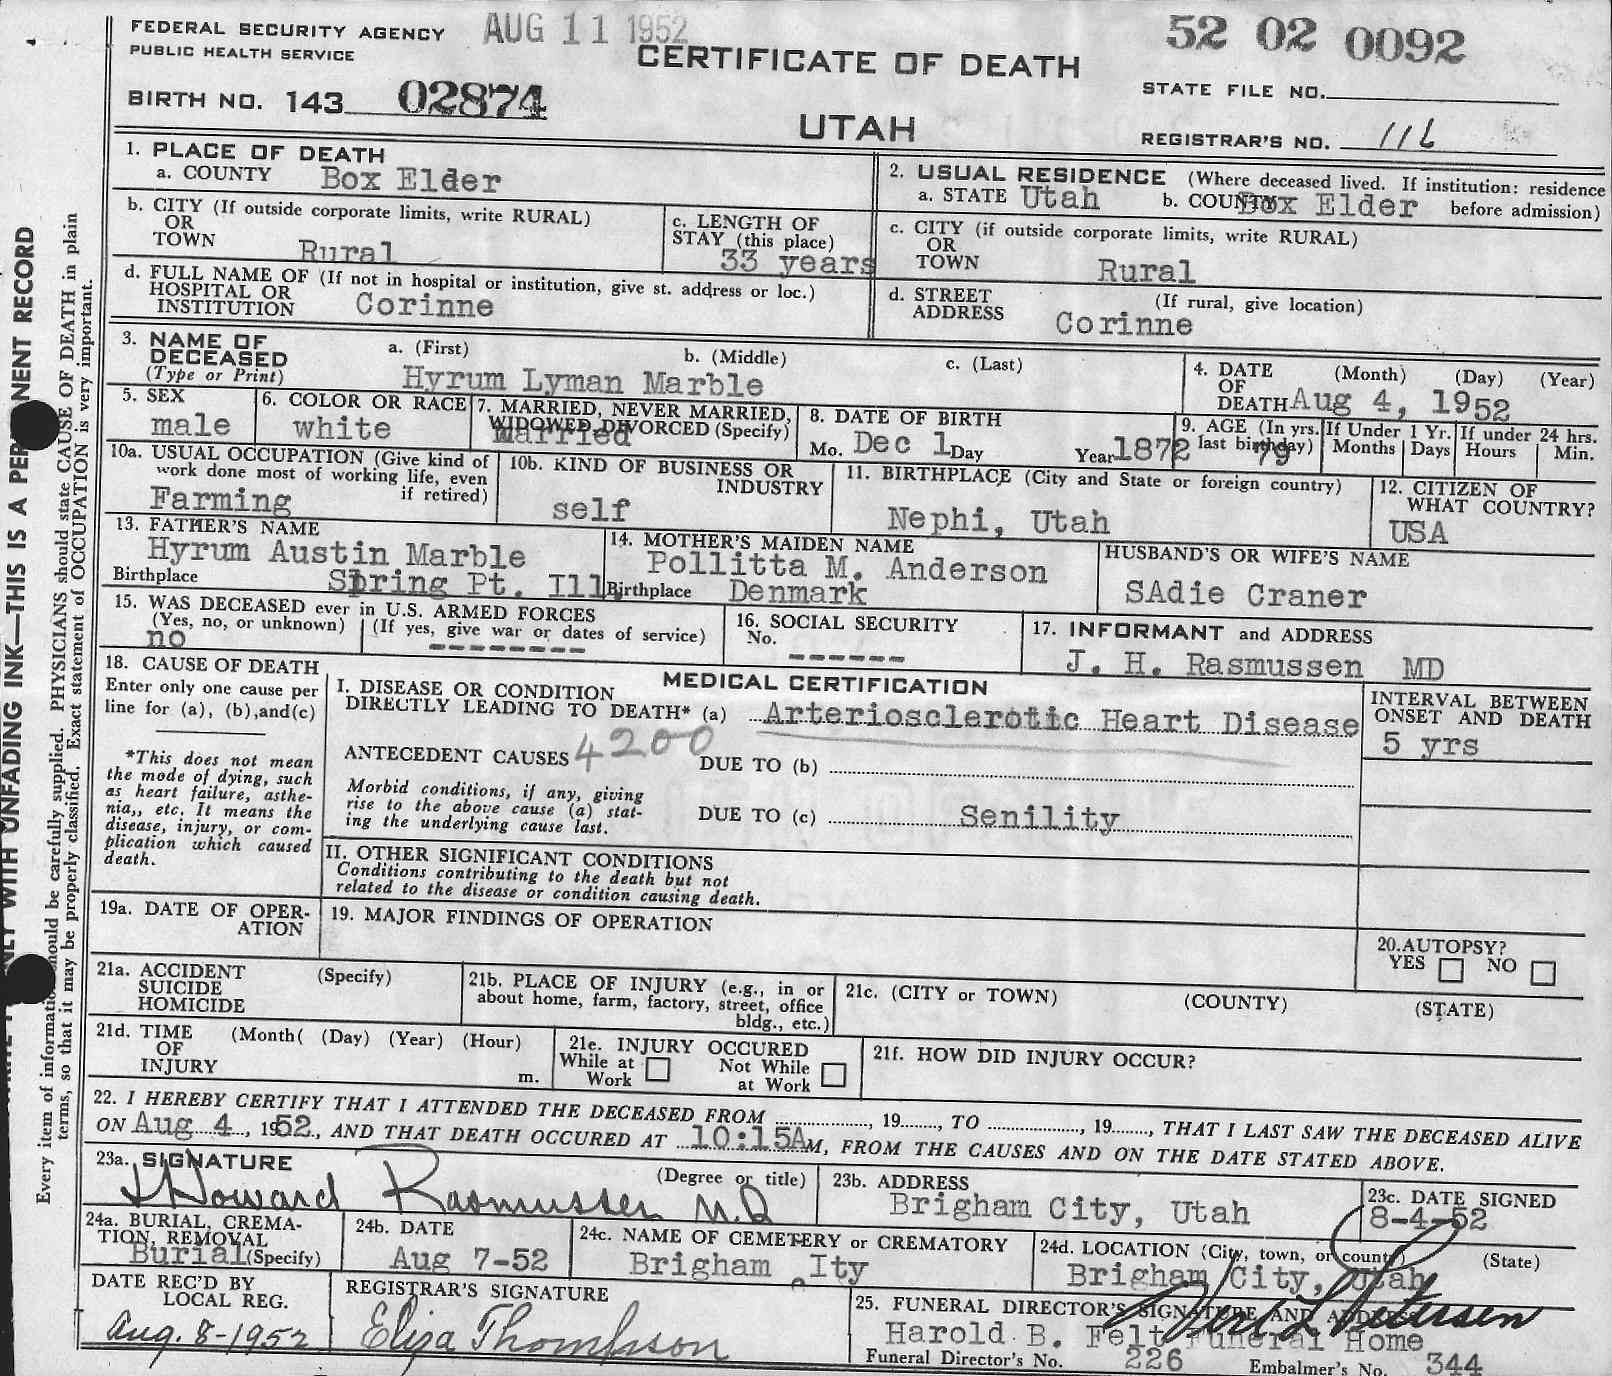 FEDERAL SECURITY AGENCY AUG 11 1952 52 02 0092
PUBLIC HEALTH SERVICE CERTIFICATE OF DEATH
STATE FILE NO.
BIRTH NO. 143 02874
UTAH
REGISTRAR'S NO. 116
1. PLACE OF DEATH
a. COUNTY Box Elder
2. USUAL RESIDENCE (Where deceased lived. If institution: residence before admission)
a. STATE Utah b. COUNTY Box Elder
b. CITY (If outside corporate limits, write RURAL)
OR
TOWN Rural
c. LENGTH OF
STAY (this place)
33 years
c. CITY (if outside corporate limits, write RURAL)
OR
TOWN Rural
d. FULL NAME OF (If not in hospital or institution, give st. address or loc.)
HOSPITAL OR
INSTITUTION Corinne
d. STREET (If rural, give location)
ADDRESS Corinne
3. NAME OF
DECEASED
(Type or Print)
a. (First) b. (Middle) c. (Last)
Hyrum Lyman Marble
4. DATE (Month) (Day) (Year)
OF
DEATH Aug 4, 1952
5. SEX
male
6. COLOR OR RACE
white
7. MARRIED, NEVER MARRIED,
WIDOWED, DIVORCED (Specify)
Married
8. DATE OF BIRTH
Mo. Dec 1 Day Year 1872
9. AGE (In yrs. last birthday) 79
If Under 1 Yr.
Months Days
If under 24 hrs.
Hours Min.
10a. USUAL OCCUPATION (Give kind of
work done most of working life, even
if retired)
Farming
10b. KIND OF BUSINESS OR
INDUSTRY
self
11. BIRTHPLACE (City and State or foreign country)
Nephi, Utah
12. CITIZEN OF
WHAT COUNTRY?
USA
13. FATHER'S NAME
Hyrum Austin Marble
Birthplace Spring Pt. Ill.
14. MOTHER'S MAIDEN NAME
Pollitta M. Anderson
Birthplace Denmark
HUSBAND'S OR WIFE'S NAME
SAdie Craner
15. WAS DECEASED ever in U.S. ARMED FORCES
(Yes, no, or unknown) (If yes, give war or dates of service)
no --------
16. SOCIAL SECURITY
No.
------
17. INFORMANT and ADDRESS
J. H. Rasmussen MD
18. CAUSE OF DEATH
Enter only one cause per
line for (a), (b),and(c)
*This does not mean
the mode of dying, such
as heart failure, asthe-
nia,, etc. It means the
disease, injury, or com-
plication which caused
death.
MEDICAL CERTIFICATION
I. DISEASE OR CONDITION
DIRECTLY LEADING TO DEATH* (a) Arteriosclerotic Heart Disease
INTERVAL BETWEEN
ONSET AND DEATH
5 yrs
ANTECEDENT CAUSES 4200 DUE TO (b)
Morbid conditions, if any, giving
rise to the above cause (a) stat-
ing the underlying cause last.
DUE TO (c) Senility
II. OTHER SIGNIFICANT CONDITIONS
Conditions contributing to the death but not
related to the disease or condition causing death.
19a. DATE OF OPER-
ATION
19. MAJOR FINDINGS OF OPERATION
20.AUTOPSY?
YES NO
21a. ACCIDENT (Specify)
SUICIDE
HOMICIDE
21b. PLACE OF INJURY (e.g., in or
about home, farm, factory, street, office
bldg., etc.)
21c. (CITY or TOWN) (COUNTY) (STATE)
21d. TIME (Month( (Day) (Year) (Hour)
OF
INJURY m.
21e. INJURY OCCURED
While at Work Not While at Work
21f. HOW DID INJURY OCCUR?
22. I HEREBY CERTIFY THAT I ATTENDED THE DECEASED FROM , 19 , TO , 19 , THAT I LAST SAW THE DECEASED ALIVE
ON Aug 4 , 1952., AND THAT DEATH OCCURED AT 10:15A M, FROM THE CAUSES AND ON THE DATE STATED ABOVE.
23a. SIGNATURE (Degree or title)
J Howard Rasmussen M.D
23b. ADDRESS
Brigham City, Utah
23c. DATE SIGNED
8-4-52
24a. BURIAL, CREMA-
TION, REMOVAL
Burial (Specify)
24b. DATE
Aug 7-52
24c. NAME OF CEMETERY or CREMATORY
Brigham Ity
24d. LOCATION (City, town, or county) (State)
Brigham City, Utah
DATE REC'D BY
LOCAL REG.
Aug. 8-1952
REGISTRAR'S SIGNATURE
Eliza Thompson
25. FUNERAL DIRECTOR'S SIGNATURE AND ADDRESS
Harold B. Felt Funeral Home
Funeral Director's No. 226 Embalmer's No. 344
NLY WITH UNFADING INK—THIS IS A PERMANENT RECORD
Every item of information should be carefully supplied. PHYSICIANS should state CAUSE OF DEATH in plain
terms, so that it may be properly classified. Exact statement of OCCUPATION is very important.